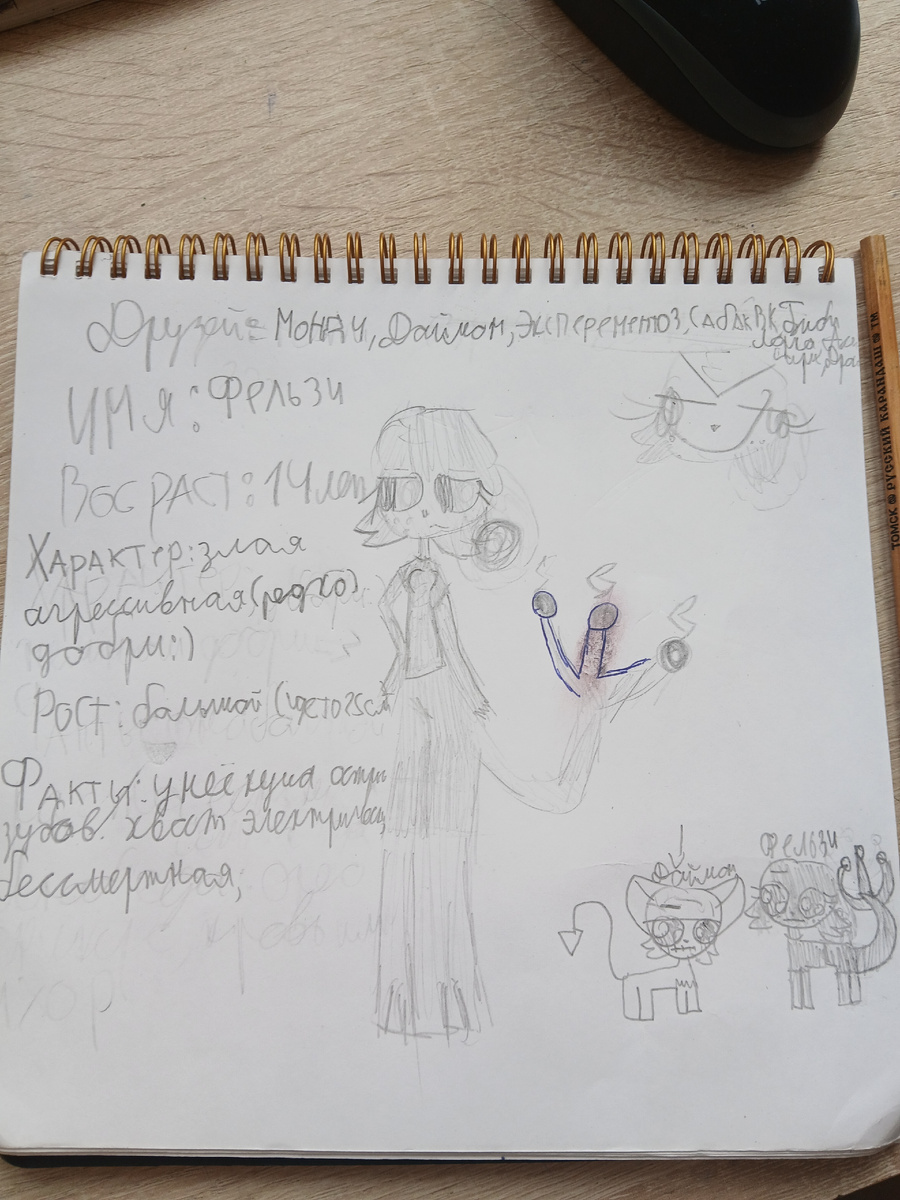 Друзей: Монди, Даймон, Эксперементоз, (
Имя: Фельзи
Возраст: 14 лет
Характер: злая
агрессивная (редко)
добри:)
Рост: балшой (
Факты: у неё куча остры
зубов. хвост электрич
бессмертная,
Даймон
Фельзи
ТОМСК РУССКИЙ КАРАНДАШ ТМ